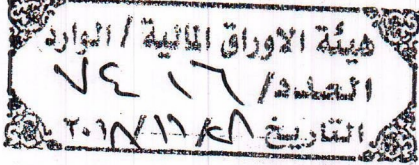 هيئة الاوراق المالية / الوارد
العدد/ ٧٤١٦
التاريخ ٢٠١٨/١١/٢٨